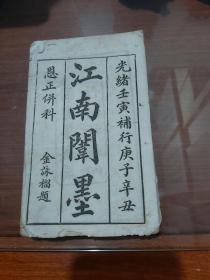 光緒壬寅補行庚子辛丑
江南闈墨
恩正併科
金詠榴題